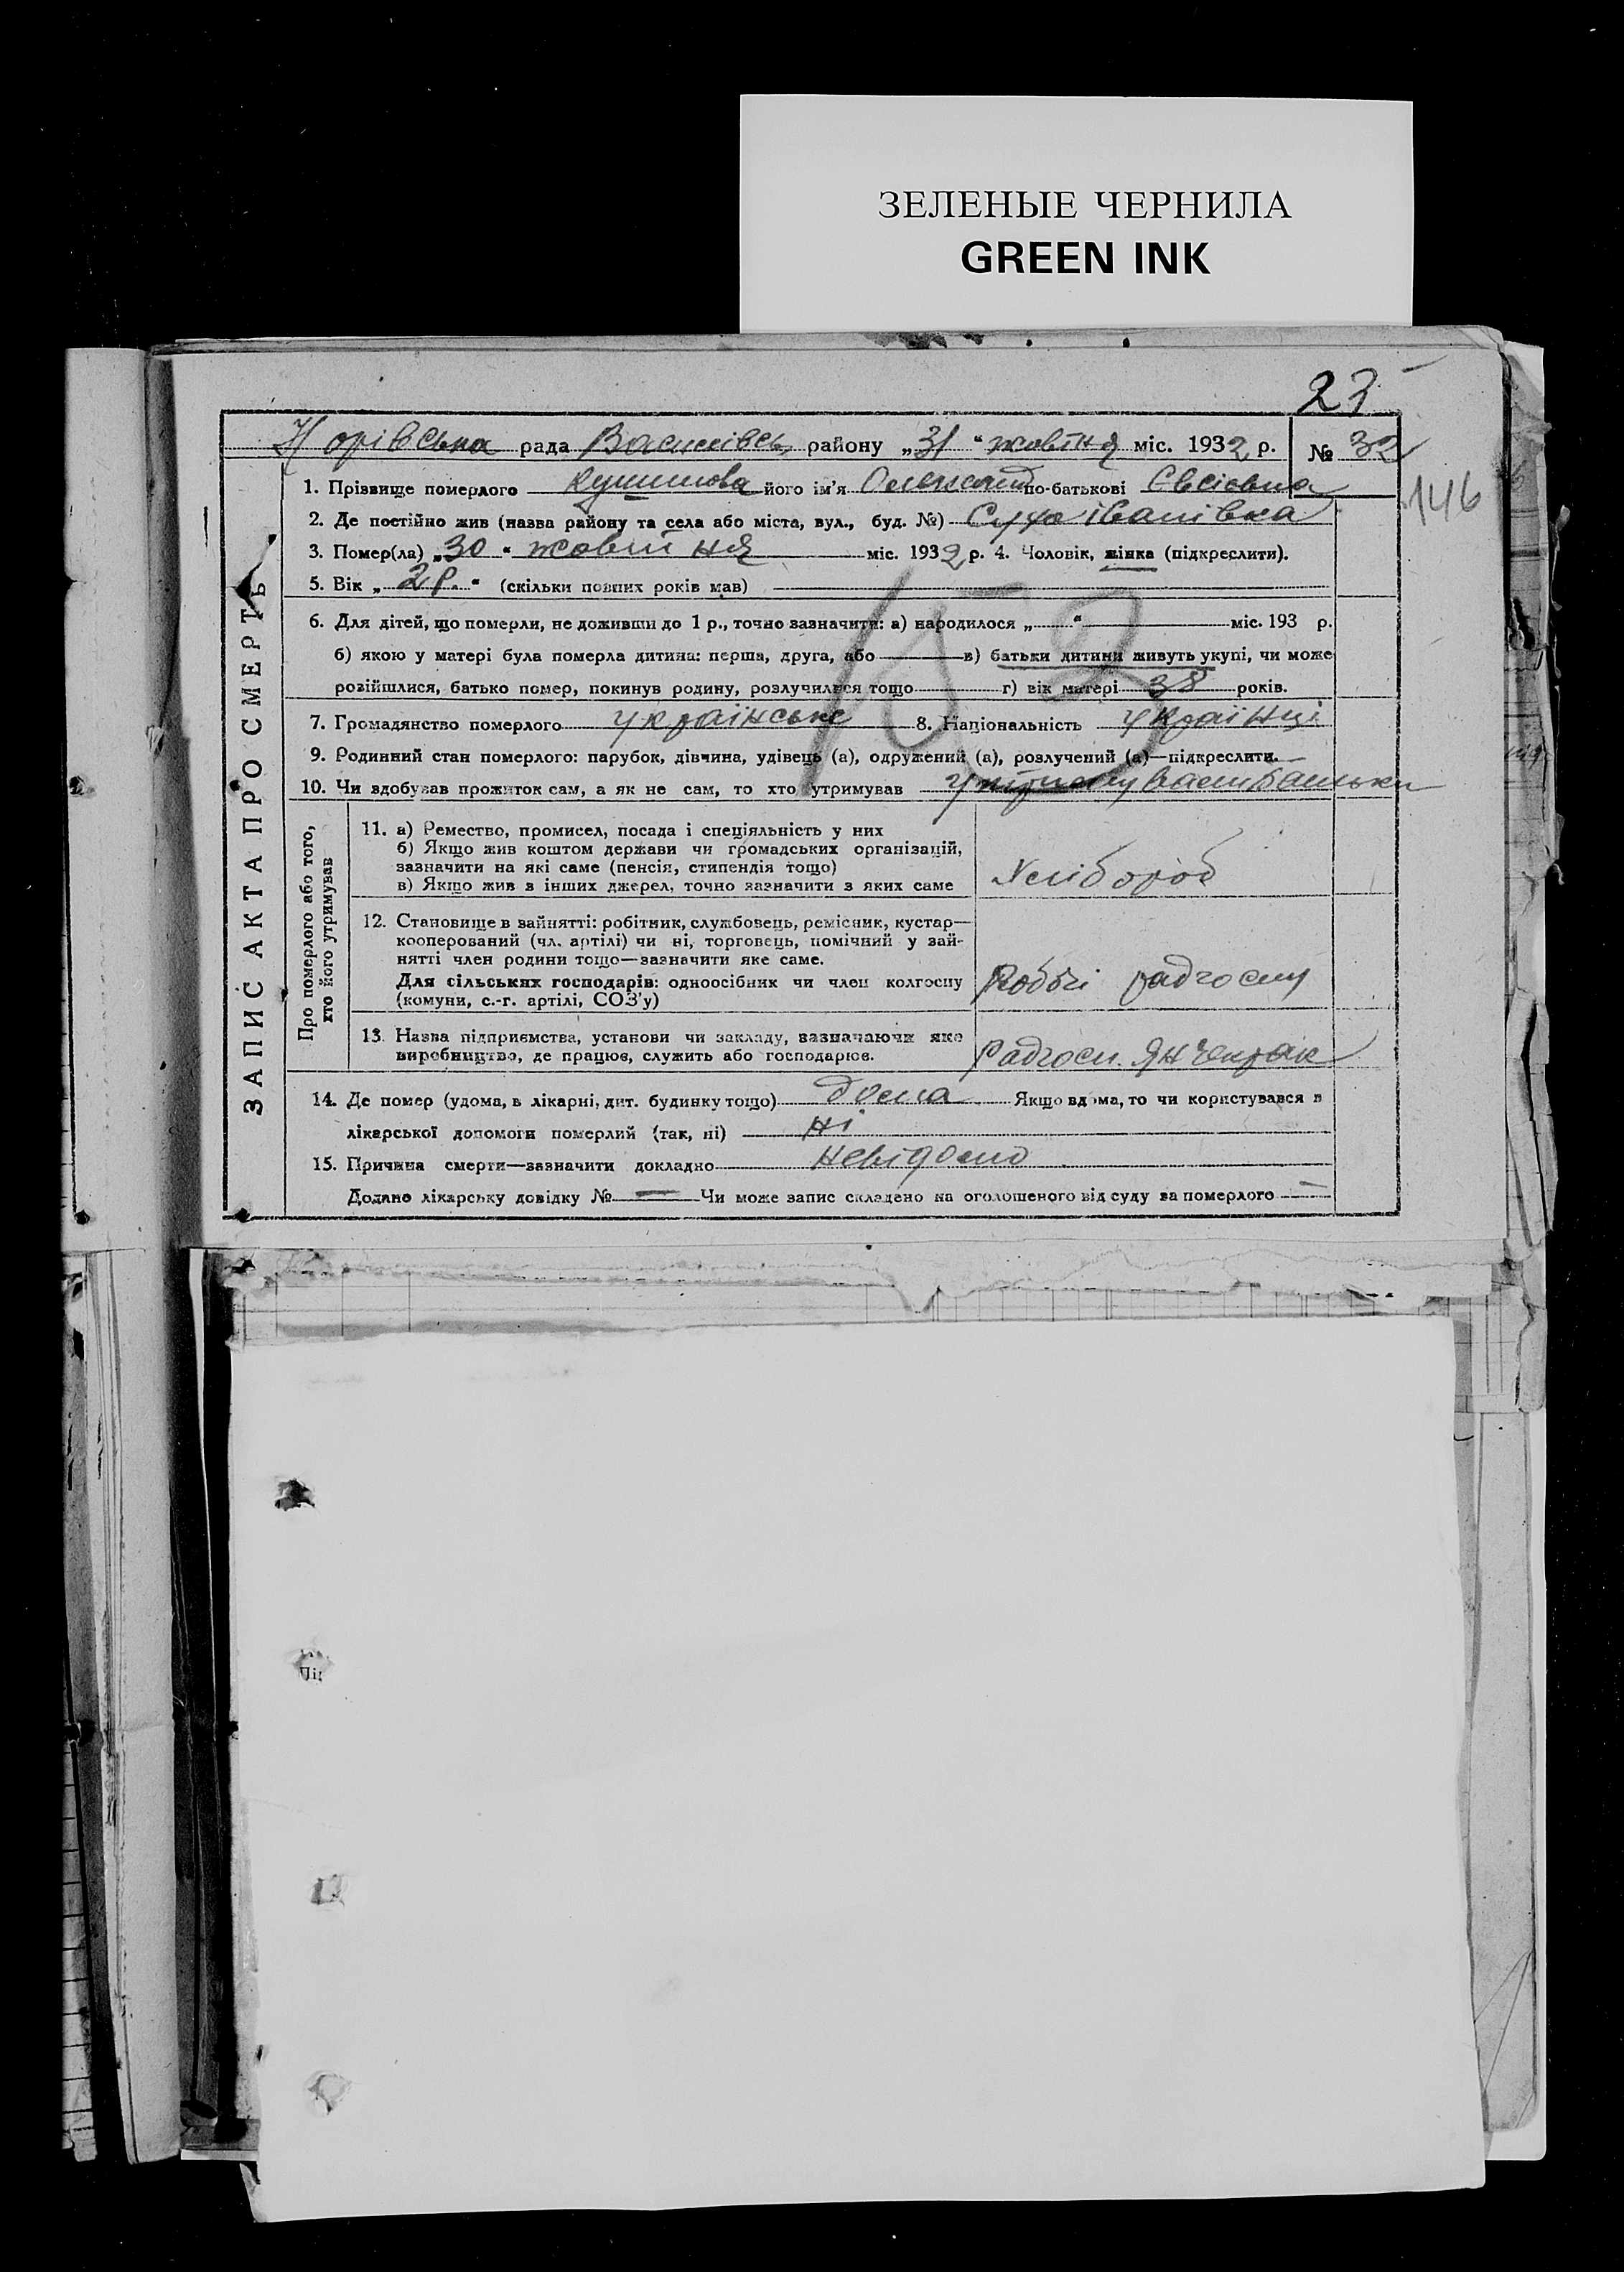 ЗЕЛЕНЫЕ ЧЕРНИЛА
GREEN INK
23
рада Василівсь району „31“ жовтня міс. 1932 р. № 32
146
1. Прізвище померлого його ім'я Олександ по-батькові Євсієвна
2. Де постійно жив (назва району та села або міста, вул., буд. №) іванівка
3. Помер(ла) „30“ жовтня міс. 1932 р. 4. Чоловік, жінка (підкреслити).
5. Вік „2 р.“ (скільки повних років мав)
6. Для дітей, що померли, не доживши до 1 р., точно зазначити: а) народилося „ “ міс. 193 р.
б) якою у матері була померла дитина: перша, друга, або в) батьки дитини живуть укупі, чи може
розійшлися, батько помер, покинув родину, розлучилися тощо г) вік матері 38 років.
152
7. Громадянство померлого українське 8. Національність Українці
9. Родинний стан померлого: парубок, дівчина, удівець (а), одружений (а), розлучений (а)—підкреслити.
10. Чи здобував прожиток сам, а як не сам, то хто утримував утримували батьки
ЗАПИС АКТА ПРО СМЕРТЬ
Про померлого або того, хто його утримував
11. а) Ремество, промисел, посада і спеціяльність у них
б) Якщо жив коштом держави чи громадських організацій,
зазначити на які саме (пенсія, стипендія тощо)
в) Якщо жив з інших джерел, точно зазначити з яких саме
Хлібороб
12. Становище в зайнятті: робітник, службовець, ремісник, кустар—
кооперований (чл. артілі) чи ні, торговець, помічний у зай-
нятті член родини тощо—зазначити яке саме.
Для сільських господарів: одноосібник чи член колгоспу
(комуни, с.-г. артілі, СОЗ'у)
Робочі радгоспу
13. Назва підприємства, установи чи закладу, зазначаючи яке
виробництво, де працює, служить або господарює.
Радгосп. Янчекрак
14. Де помер (удома, в лікарні, дит. будинку тощо) дома Якщо вдома, то чи користувався з
лікарської допомоги померлий (так, ні) ні
15. Причина смерти—зазначити докладно невідомо
Додано лікарську довідку № — Чи може запис складено на оголошеного від суду за померлого —